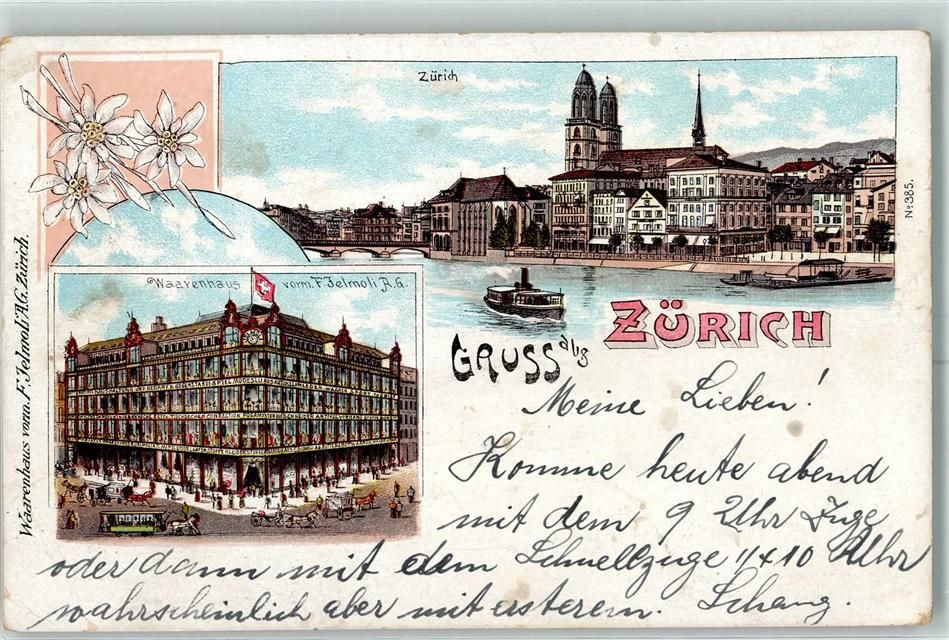 Zürich
Nº 385.
Waarenhaus vorm. F. Jelmoli A.G.
Waarenhaus vorm. F. Jelmoli A.G. Zürich.
GRUSS aus ZÜRICH
Meine Lieben!
Komme heute abend
mit dem 9 Uhr Zuge
oder dann mit dem Schnellzuge 11 Uhr
wahrscheinlich aber mit ersterem. Schang.